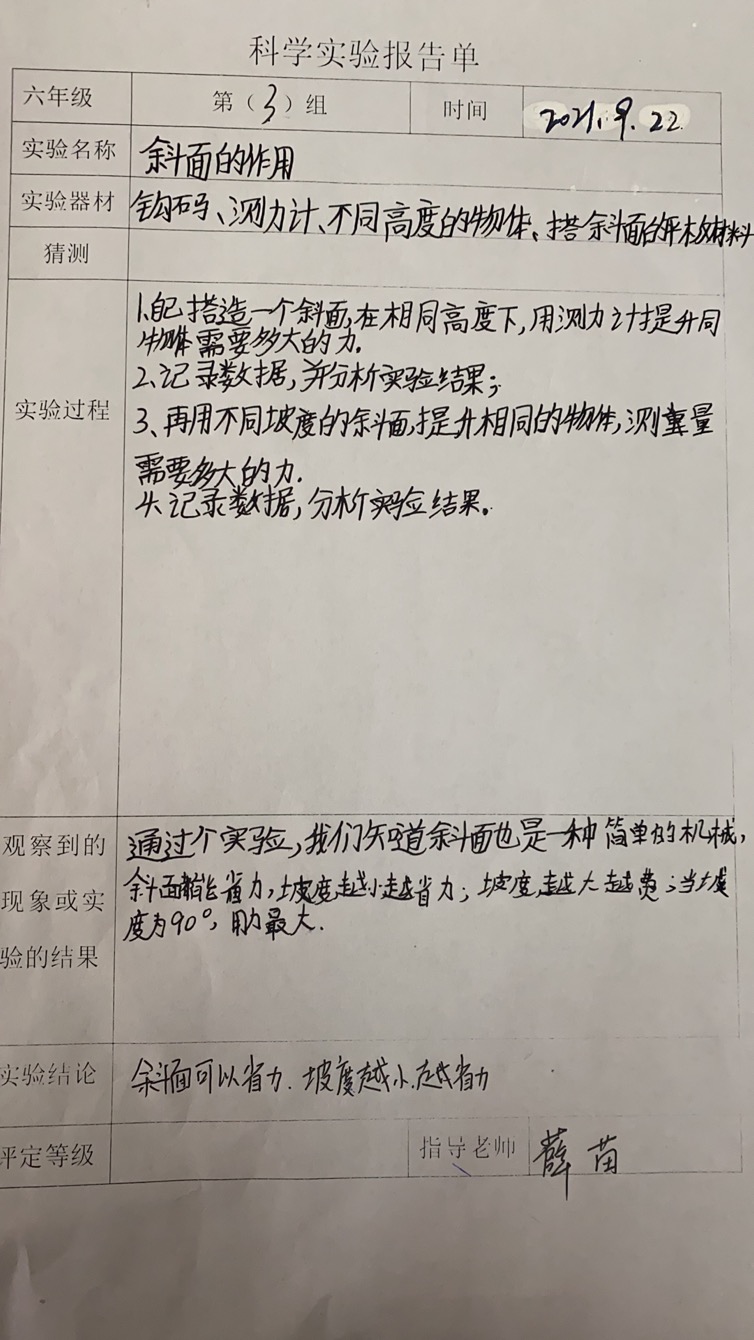 科学实验报告单
六年级 第（3）组 时间 2021.9.22
实验名称 斜面的作用
实验器材 钩码、测力计、不同高度的物体、搭斜面的平木板材料
猜测
1.自己搭造一个斜面,在相同高度下,用测力计提升同
物体需要多大的力.
2.记录数据,并分析实验结果;
实验过程 3、再用不同坡度的斜面,提升相同的物体,测量
需要多大的力.
4.记录数据,分析实验结果。
观察到的 通过个实验,我们知道斜面也是一种简单的机械,
现象或实 斜面都能省力,坡度越小越省力;坡度越大越费;当坡
验的结果 度为90°,用力最大.
实验结论 斜面可以省力.坡度越小.越省力
评定等级 指导老师 薛苗